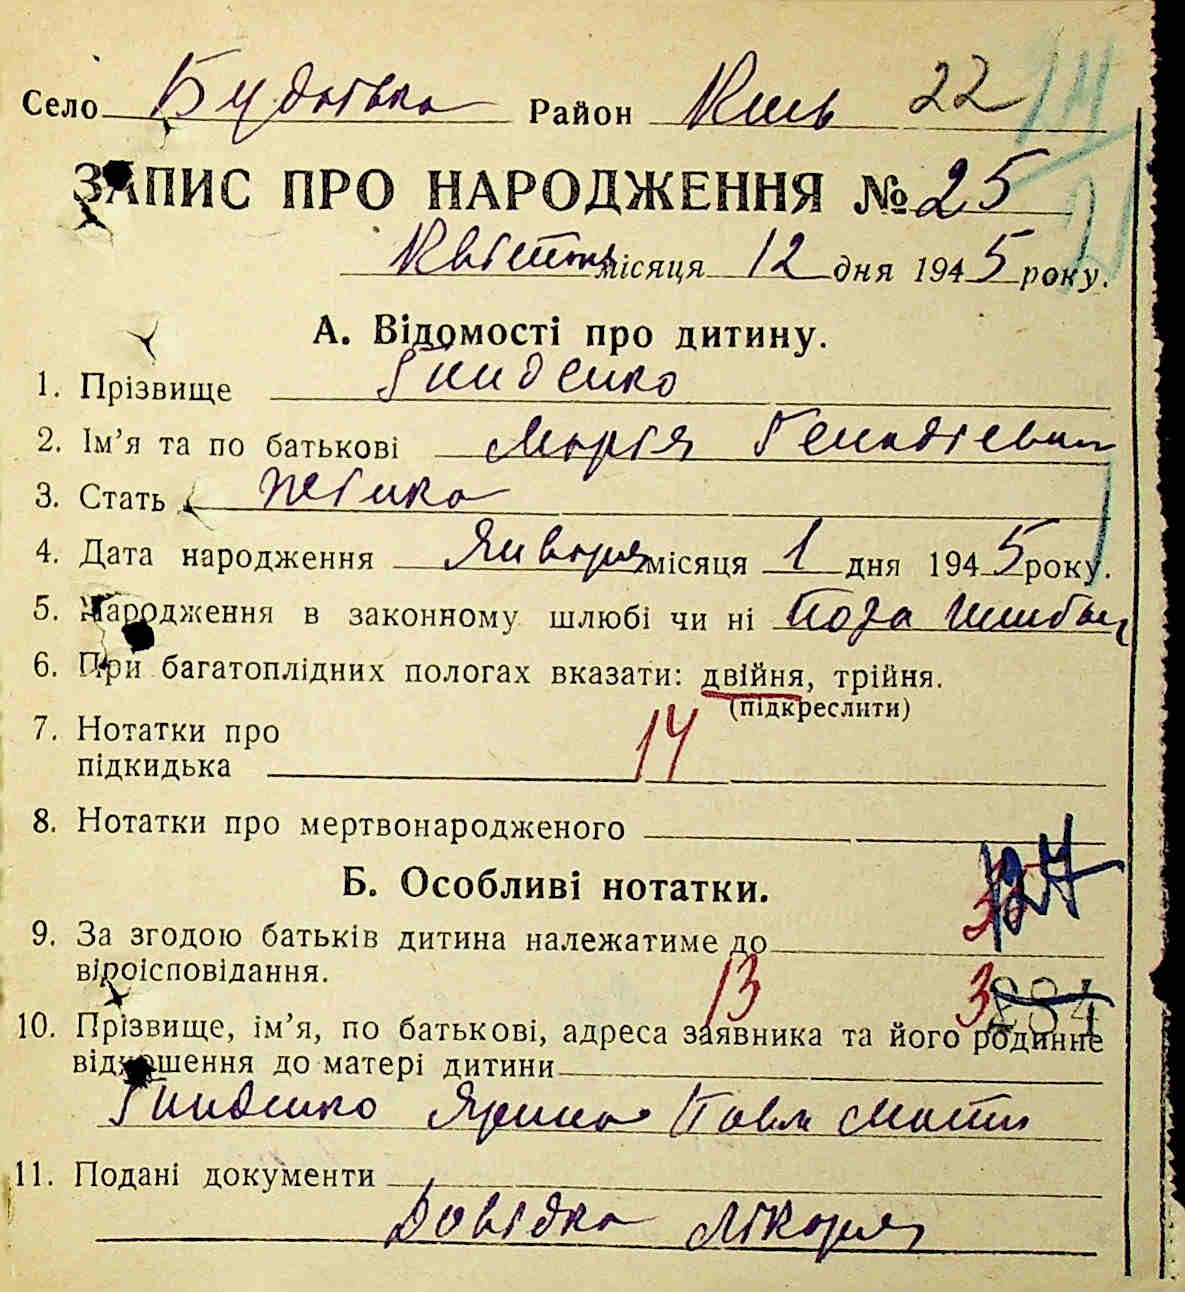 Село Будаївка Район Київ 22
ЗАПИС ПРО НАРОДЖЕННЯ № 25
Квітень місяця 12 дня 1945 року.
А. Відомості про дитину.
1. Прізвище Гниденко
2. Ім’я та по батькові Марія Генадієвич
3. Стать Жіинка
4. Дата народження Января місяця 1 дня 1945 року.
5. Народження в законному шлюбі чи ні Поза шлюбом
6. При багатоплідних пологах вказати: двійня, трійня.
(підкреслити)
7. Нотатки про
підкидька 14
8. Нотатки про мертвонародженого
Б. Особливі нотатки.
9. За згодою батьків дитина належатиме до
віроісповідання. 13
10. Прізвище, ім’я, по батькові, адреса заявника та його родинне
відношення до матері дитини
Гниденко Ярина Павл мати
11. Подані документи
Довідка Лікаря